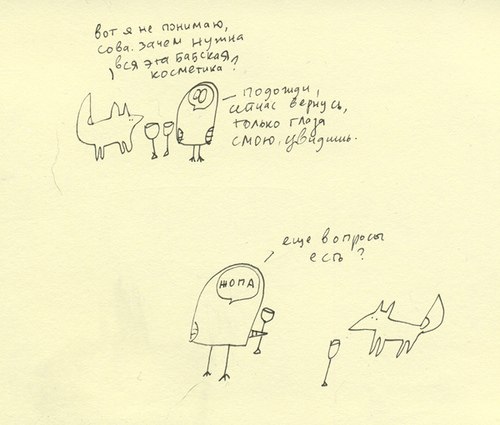 вот я не понимаю,
сова. зачем нужна
вся эта бабская
косметика?
подожди,
сейчас вернусь,
только глаза
смою. увидишь.
еще вопросы
есть?
ЖОПА